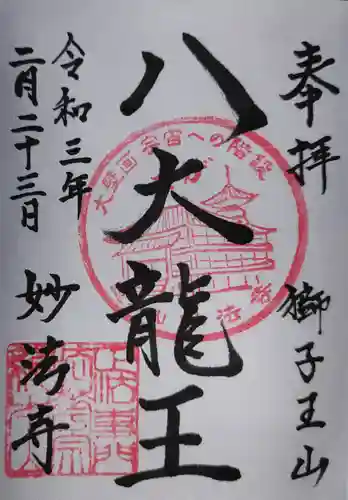 奉拝
獅子王山
八大龍王
令和三年
二月二十三日
妙法寺
大壁画宇宙への階段